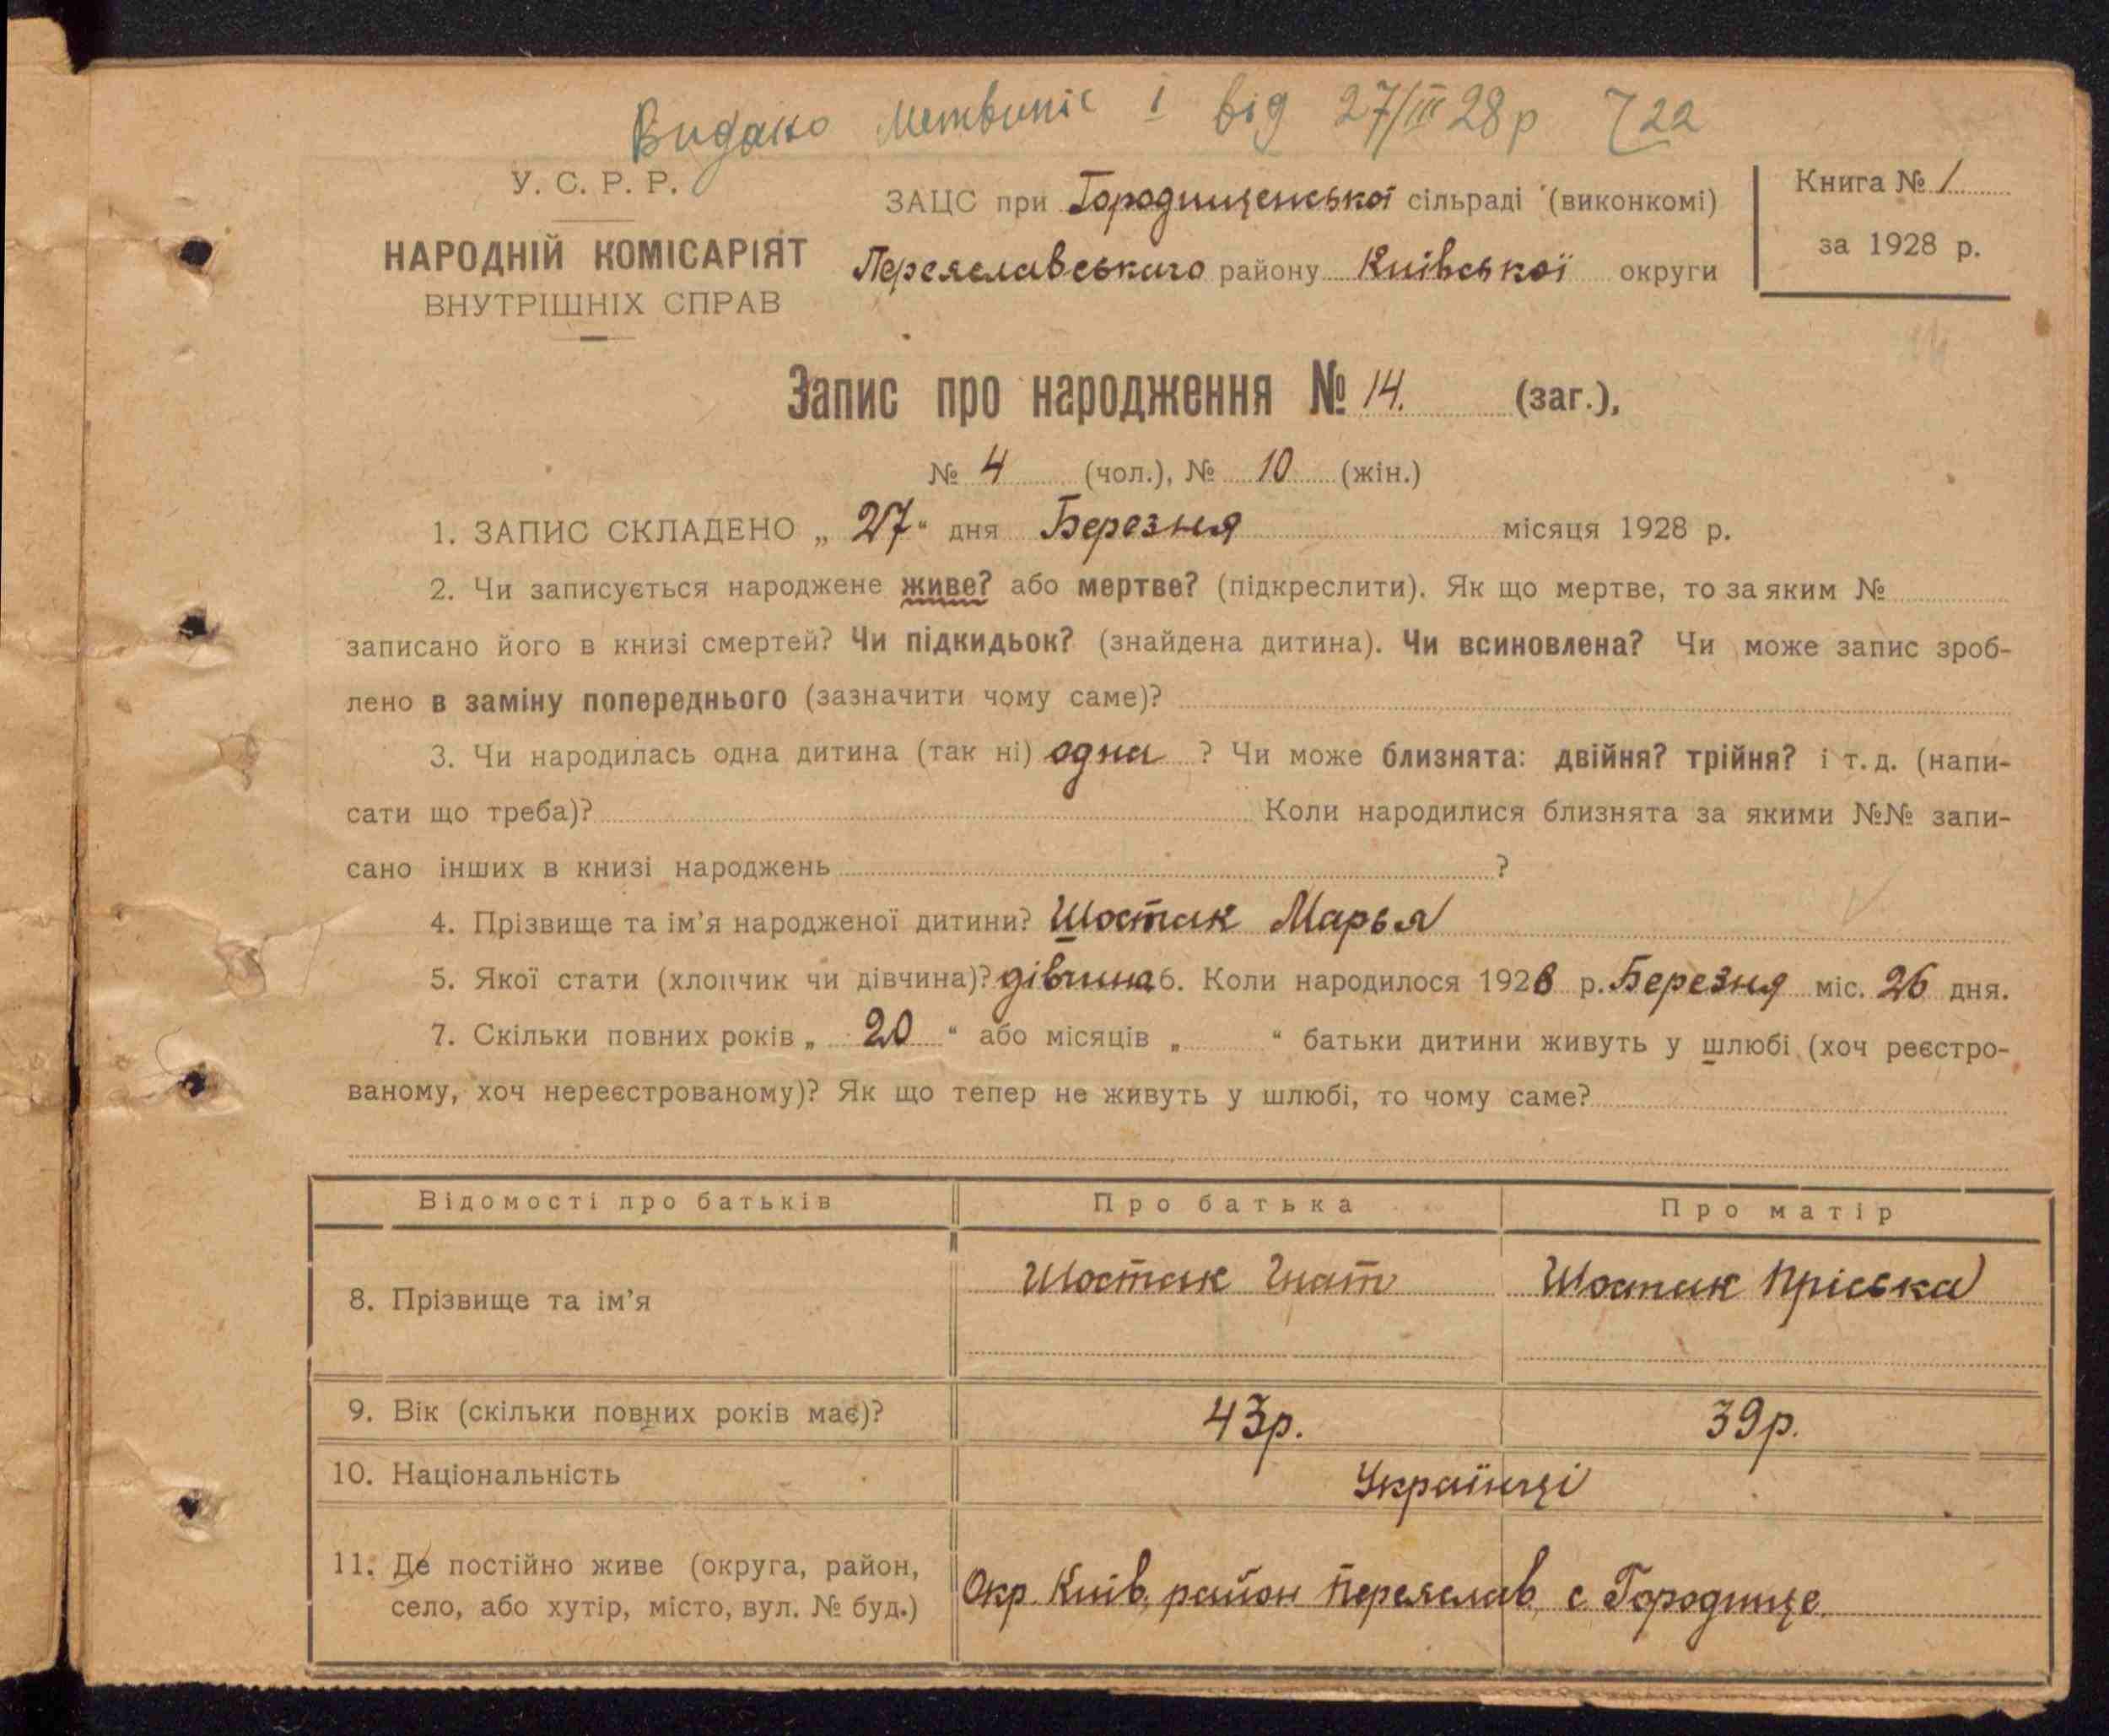 Видано Метвипіс і від 27/III 28 р 722
У. С. Р. Р.
НАРОДНІЙ КОМІСАРІЯТ
ВНУТРІШНІХ СПРАВ
ЗАЦС при Городищенської сільраді (виконкомі)
Переяславського району Київської округи
Книга № 1
за 1928 р.
Запис про народження № 14. (заг.),
№ 4 (чол.), № 10 (жін.)
1. ЗАПИС СКЛАДЕНО „ 27 “ дня Березня місяця 1928 р.
2. Чи записується народжене живе? або мертве? (підкреслити). Як що мертве, то за яким №
записано його в книзі смертей? Чи підкидьок? (знайдена дитина). Чи всиновлена? Чи може запис зроб-
лено в заміну попереднього (зазначити чому саме)?
3. Чи народилась одна дитина (так ні) одна ? Чи може близнята: двійня? трійня? і т. д. (напи-
сати що треба)? Коли народилися близнята за якими №№ запи-
сано інших в книзі народжень ?
4. Прізвище та ім’я народженої дитини? Шостак Марья
5. Якої стати (хлопчик чи дівчина)? дівчина 6. Коли народилося 1928 р. Березня міс. 26 дня.
7. Скільки повних років „ 20 “ або місяців „ “ батьки дитини живуть у шлюбі (хоч реєстро-
ваному, хоч нереєстрованому)? Як що тепер не живуть у шлюбі, то чому саме?
Відомості про батьків Про батька Про матір
8. Прізвище та ім’я Шостак Гнат Шостак Пріська
9. Вік (скільки повних років має)? 43р. 39р.
10. Національність Українці
11. Де постійно живе (округа, район,
село, або хутір, місто, вул. № буд.) Окр. Київ. район Переяслав, с Городище